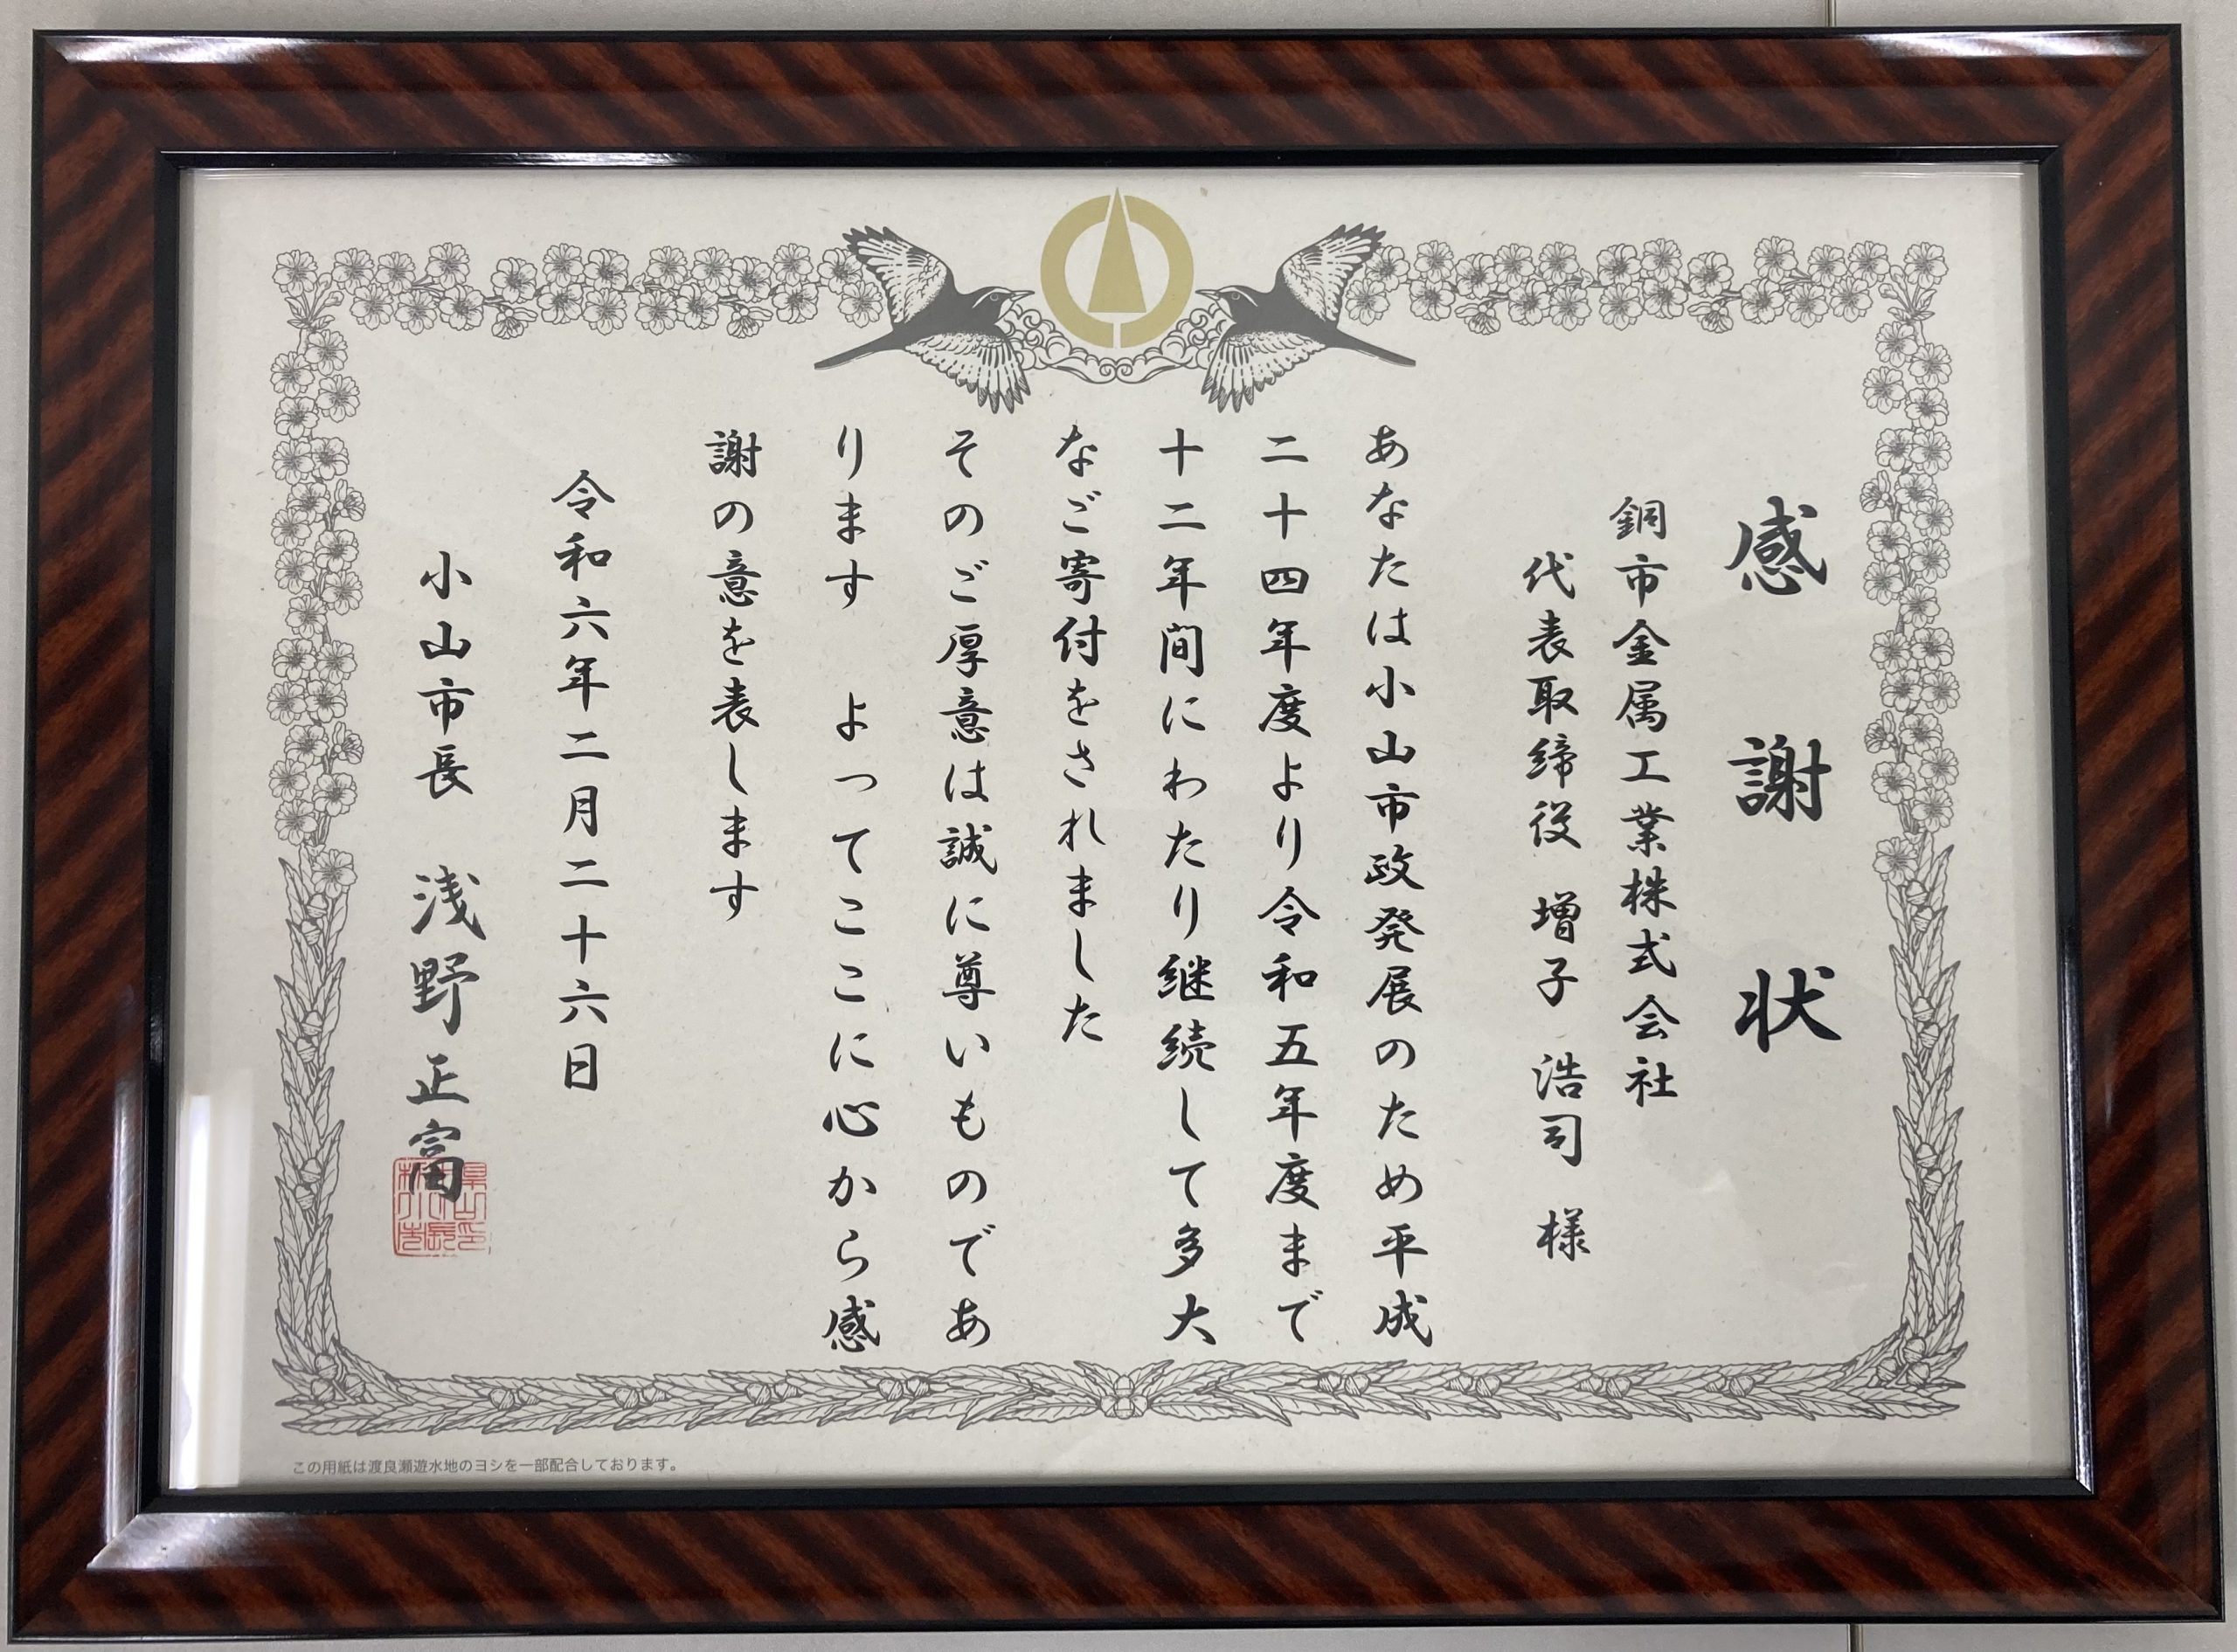 感謝状
銅市金属工業株式会社
代表取締役 増子 浩司 様
あなたは小山市政発展のため平成
二十四年度より令和五年度まで
十二年間にわたり継続して多大
なご寄付をされました
そのご厚意は誠に尊いものであ
ります よってここに心から感
謝の意を表します
令和六年二月二十六日
小山市長 浅野正富
この用紙は渡良瀬遊水地のヨシを一部配合しております。